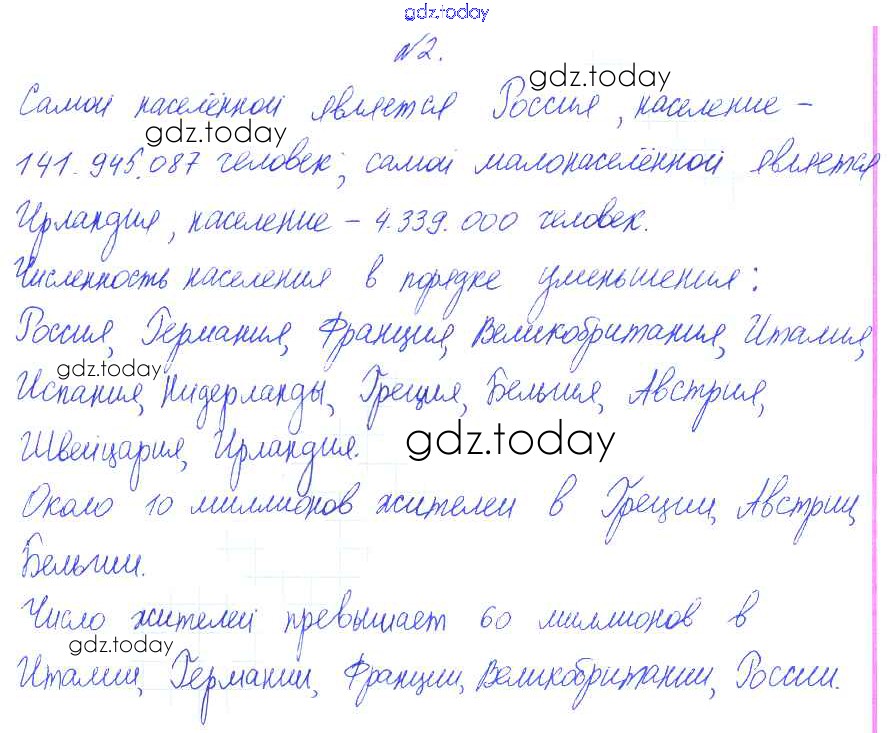 gdz.today
№2.
gdz.today
Самой населённой является Россия, население –
gdz.today
141.945.087 человек; самой малонаселённой является
Ирландия, население – 4.339.000 человек.
Численность населения в порядке уменьшения:
Россия, Германия, Франция, Великобритания, Италия,
gdz.today
Испания, Нидерланды, Греция, Бельгия, Австрия,
Швейцария, Ирландия.
gdz.today
Около 10 миллионов жителей в Греции, Австрии,
Бельгии.
Число жителей превышает 60 миллионов в
gdz.today
Италии, Германии, Франции, Великобритании, России.